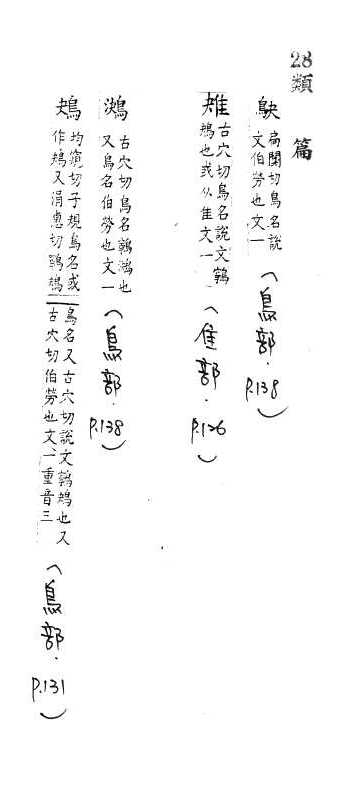 28類篇
鴃
扃闃切鳥名說
文伯勞也文一
(鳥部.P.138)
古穴切鳥名說文鷤
鴂也或从隹文一
(隹部.P.126)
古穴切鳥名鷤也
又鳥名伯勞也文一
(鳥部.P.138)
鴂
均窺切子規鳥名或
作鴂又涓惠切鷤鴂
鳥名又古穴切說文鷤鴂也又
古穴切伯勞也文一重音三
(鳥部.P.131)